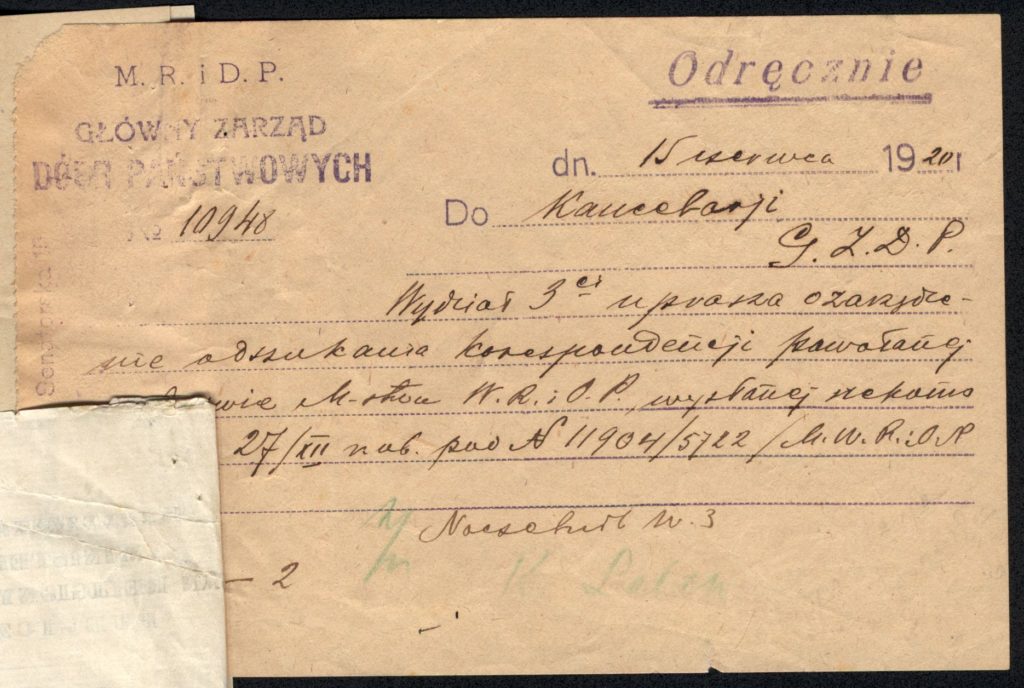 M. R. i D. P.
Odręcznie
GŁÓWNY ZARZĄD
DÓBR PAŃSTWOWYCH
dn. 15 czerwca 1920 r
№ 10948
Do Kancelarji
G. Z. D. P.
Wydział 3ci uprasza o zarządze-
nie odszukania korespondencji powołanej
M-stwa W. R. i O. P. wysłanej rzekomo
27/XII r. ub. pod № 11904/5722 /M. W. R. i O. P.
Naczelnik W. 3
- 2